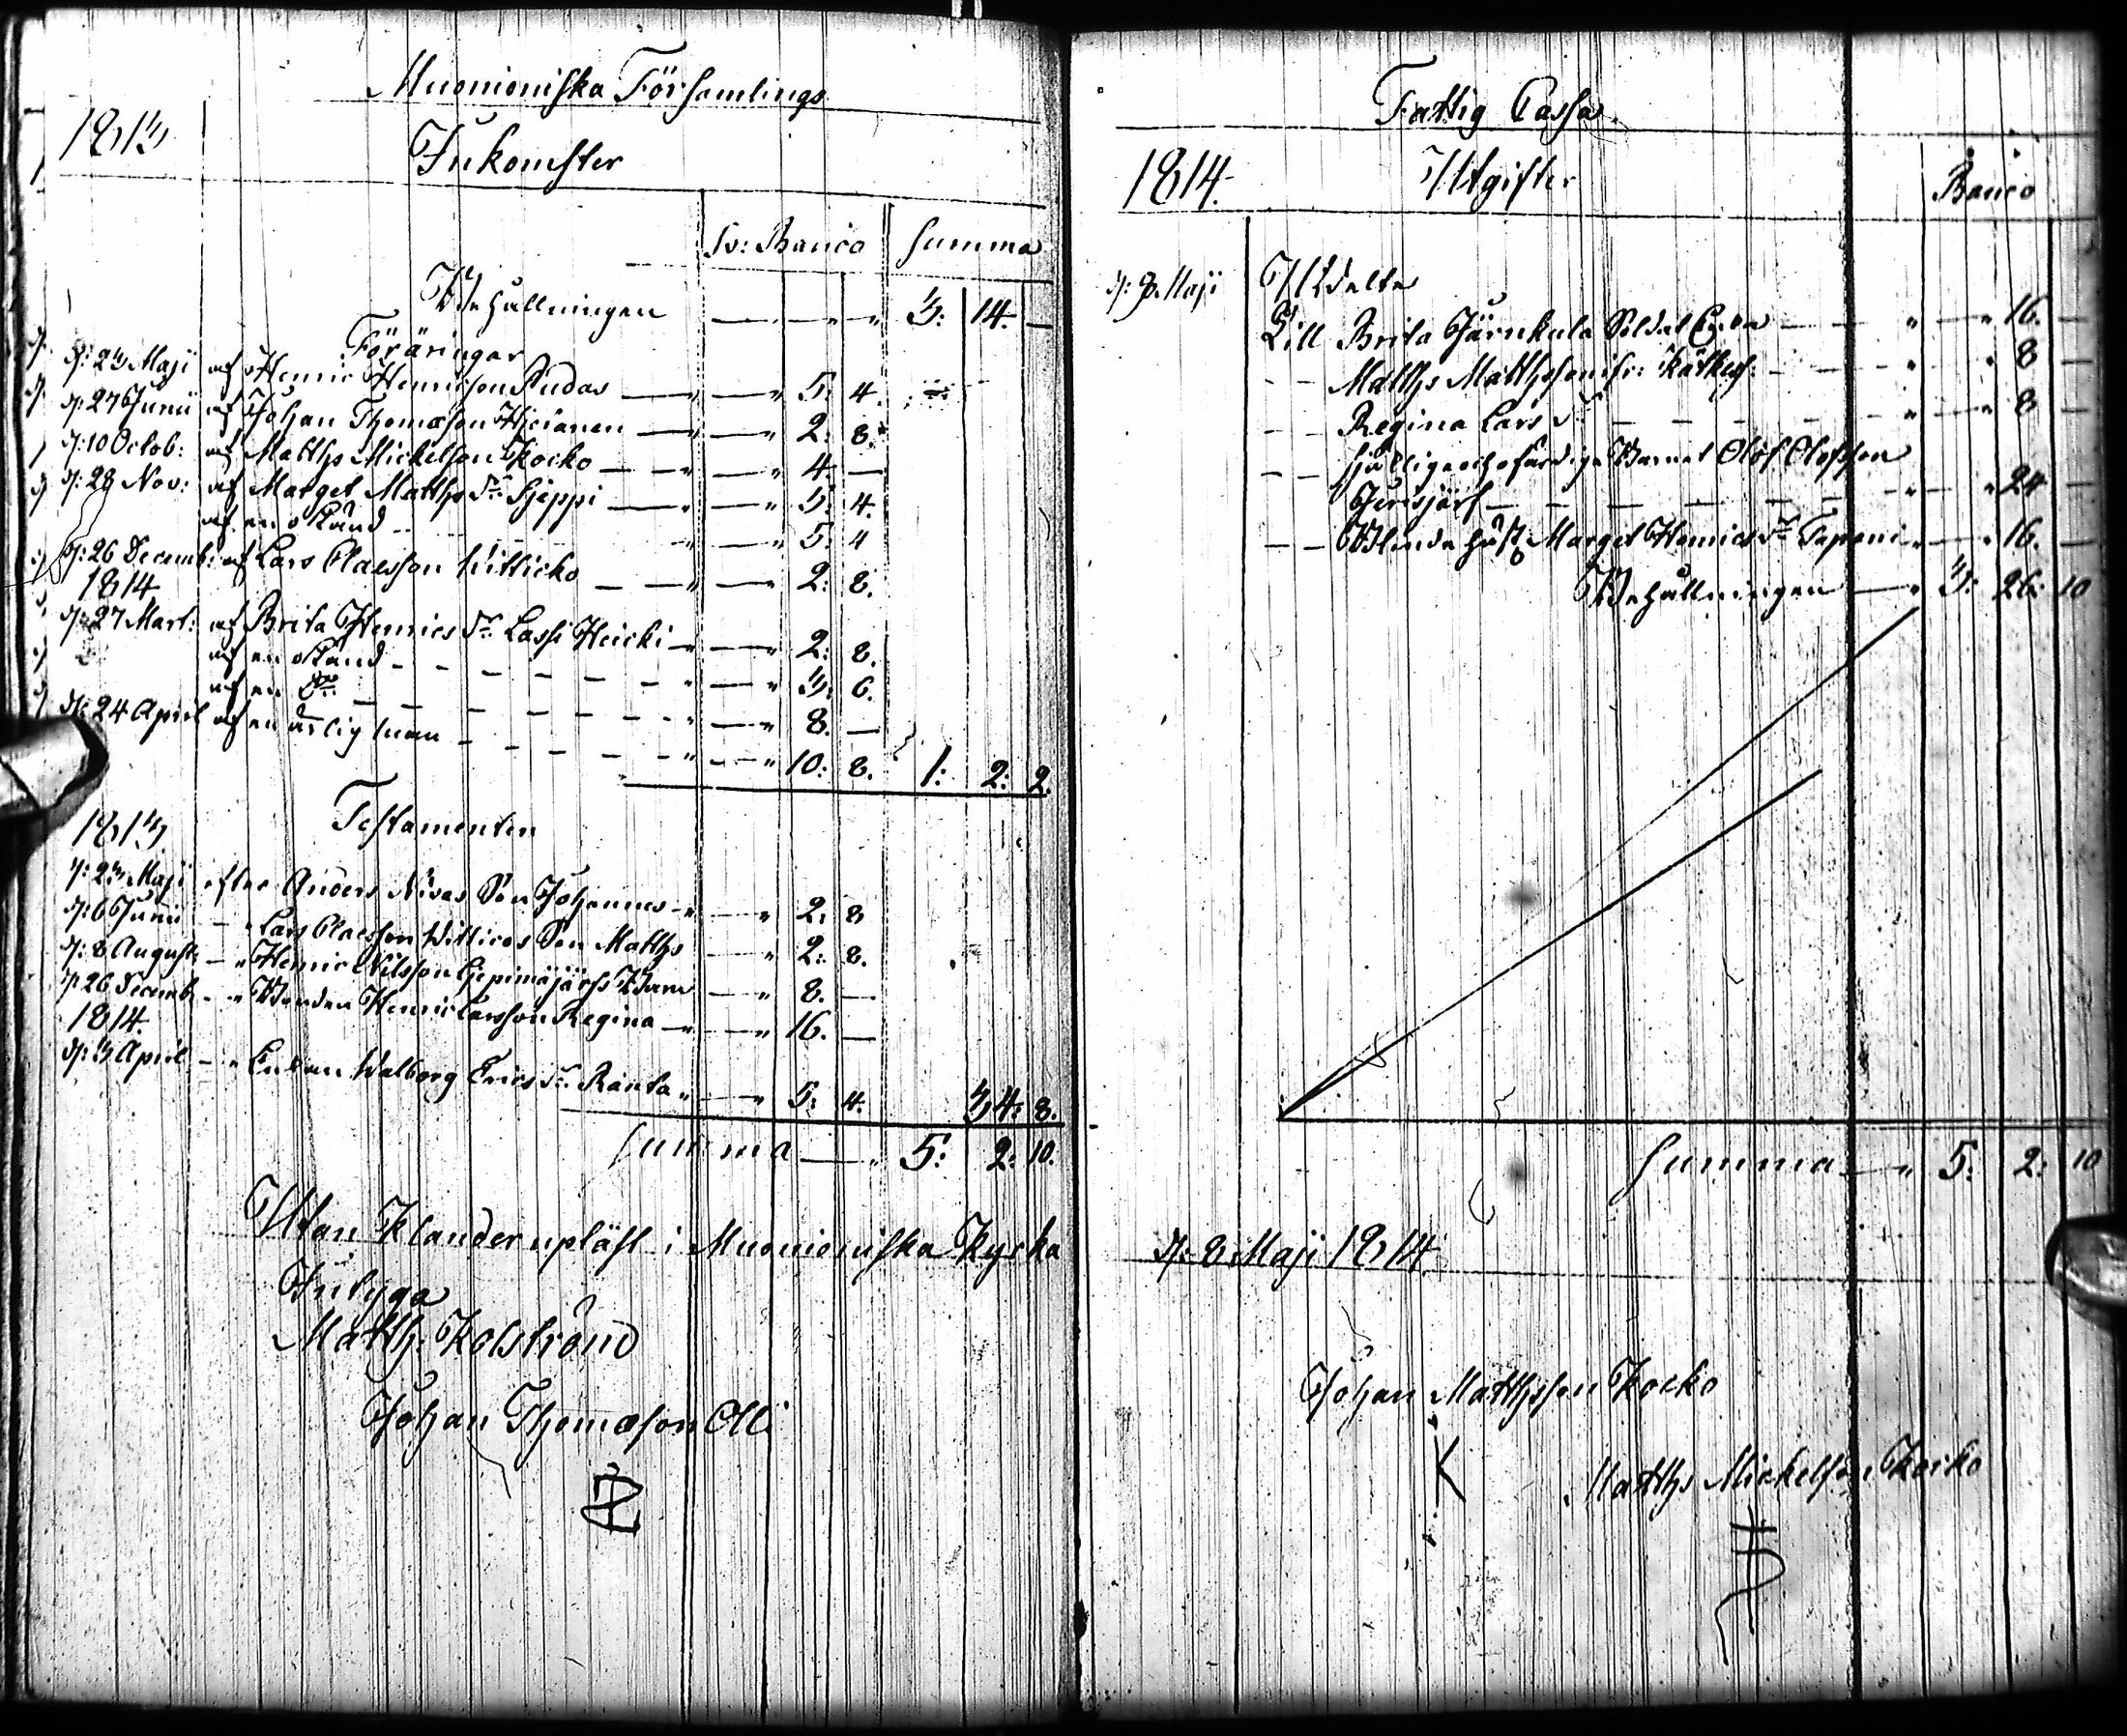 Muonioniska Församlings
1813
Inkomster
Sv: Banco Summa
Behållningen — " " 3: 14. —
Föräringar
d: 23 Maji af Henric Henricsson Rudas — — " 5: 4.
d: 27 Junii af Johan Thomæson Hjetanen — — " 2: 8.
d: 10 Octob: af Matths Mickelson Kocko — — " 4. —
d: 28 Nov: af Marget Matths dr Sjeppi — — " 5: 4.
af en okänd — " — " 5: 4
d: 26 Decemb: af Lars Claesson Witticko — — " 2: 8.
1814
d: 27 Mart: af Brita Henrics dr Lassi Heicki — — " 2: 8.
af en okänd — — — " — " 3: 6.
af en do — — — " — " 8. —
d: 24 April af en ärlig man — — — " — " 10: 8. 1: 2: 2.
1813. Testamenten
d: 23 Maji efter Anders Nivas Son Johannes — " — " 2: 8
d: 6 Junii — " Lars Claesson Witticos Son Matths — " 2: 8.
d: 8 August: — " Henric Nilsson Sjepimäjärfs Barn — " 8. —
d: 26 Decemb: — " Bonden Henric Larsson Regina — " — " 16. —
1814.
d: 3 April — " Enkan Walborg Erics dr Ranta " — " 5: 4. 34: 8.
Summa — " 5: 2: 10.
Utan Klander upläst i Muonioniska Kyrka
Intyga
Matth. Kolström
Johan Thomæson Olli
Fattig Cassa
1814. Utgifter Banco
d: 8. Maji Utdelte
Till Brita Järnkula Soldat Enka — — " — " 16. —
— — Matths Matthsson ifr: Kätkes: — — " — " 8 —
— — Regina Lars dr — — — " — " 8 —
— — sjuklige och ofärdige Barnet Olof Olofsson
Jerisjärf — — — " — " 24 —
— — Blinda hust: Marget Henrics dr Tapani " — " 16. —
Behållningen — " 3: 26: 10
Summa — " 5: 2: 10
d: 8 Maji 1814.
Johan Matthsson Kocko
K
Matths Mickelson Kocko